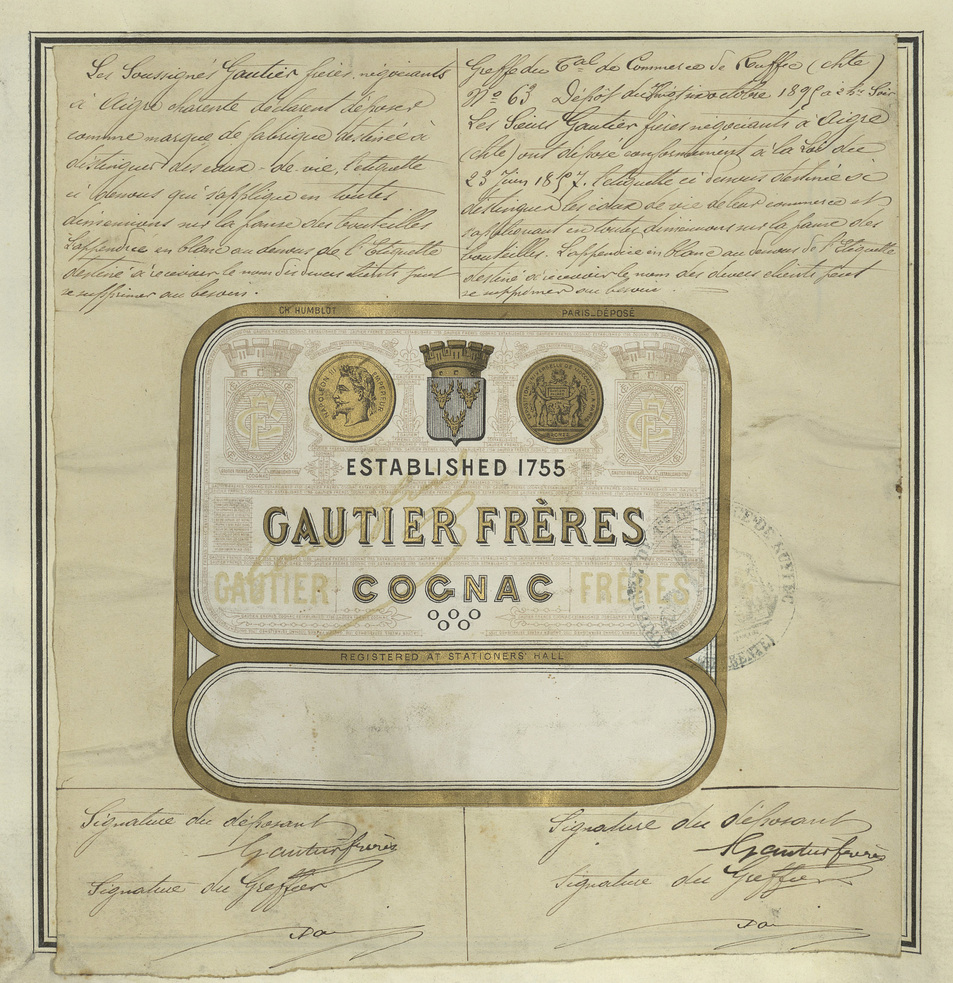 Les Soussignés Gautier frères, négociants
à Aigre charente déclarent déposer
comme marque de fabrique destinée à
distinguer des eaux-de-vie, l'etiquette
ci dessous qui s'applique en toutes
dimensions sur la panse des bouteilles
L'appendice en blanc au dessous de l'Etiquette
destiné à recevoir le nom des divers clients peut
se supprimer au besoin.
Greffe du Tal de Commerce de Ruffec (chte)
No 63 Dépôt du octobre à 2 hrs Soir
Les Sieurs Gautier frères négociants à Aigre
(chte) ont déposé conformément à la Loi du
23 Juin 1857. l'etiquette ci dessous destinée à
distinguer les eaux de vie de leur commerce et
s'appliquant en toutes dimensions sur la panse des
bouteilles. L'appendice en blanc au dessous de l'Etiquette
destiné à recevoir le nom des divers clients peut
se supprimer au besoin.
CH. HUMBLOT PARIS_DÉPOSÉ
NAPOLEON III EMPEREUR
ESTABLISHED 1755
GAUTIER FRÈRES
GAUTIER COGNAC FRÈRES
REGISTERED AT STATIONERS' HALL
Signature du déposant
Gautier frères
Signature du Greffier
Signature du déposant
Gautier frères
Signature du Greffier